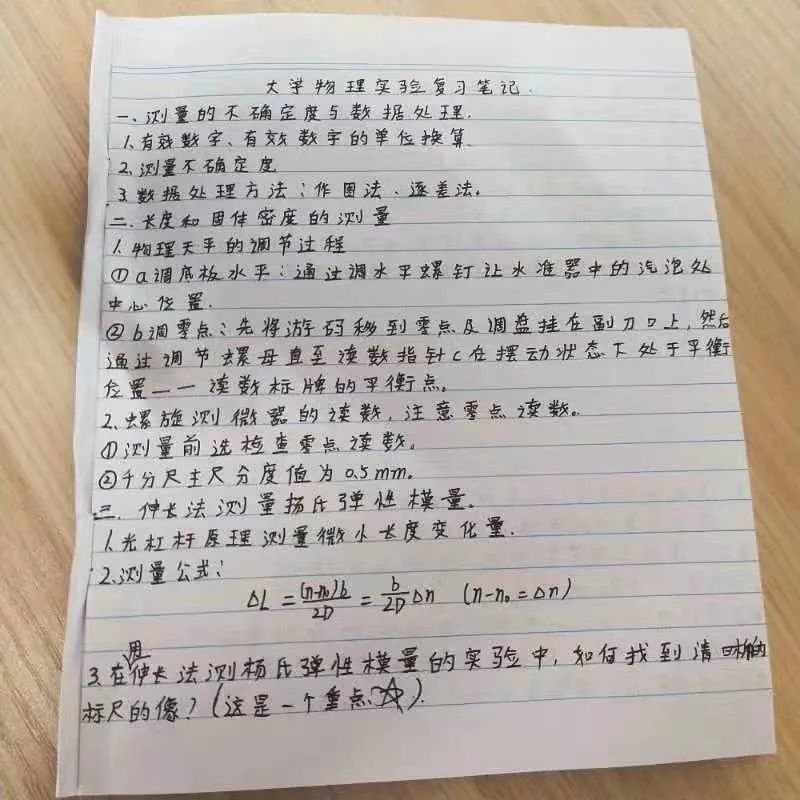 大学物理实验复习笔记.
一、测量的不确定度与数据处理.
1.有效数字、有效数字的单位换算.
2.测量不确定度
3.数据处理方法:作图法、逐差法。
二、长度和固体密度的测量
1.物理天平的调节过程
①a调底板水平:通过调水平螺钉让水准器中的汽泡处
中心位置.
②b调零点:先将游码移到零点及调盘挂在副刀口上,然后
通过调节螺母直至读数指针c在摆动状态下处于平衡
位置——读数标牌的平衡点。
2.螺旋测微器的读数,注意零点读数。
①测量前选检查零点读数。
②千分尺主尺分度值为0.5mm。
三、伸长法测量扬氏弹性模量。
1.光杠杆原理测量微小长度变化量.
2.测量公式:
ΔL = (n-n₀)b/2D = b/2D Δn (n-n₀=Δn)
3.在用伸长法测杨氏弹性模量的实验中,如何找到清晰的
标尺的像?(这是一个重点☆).